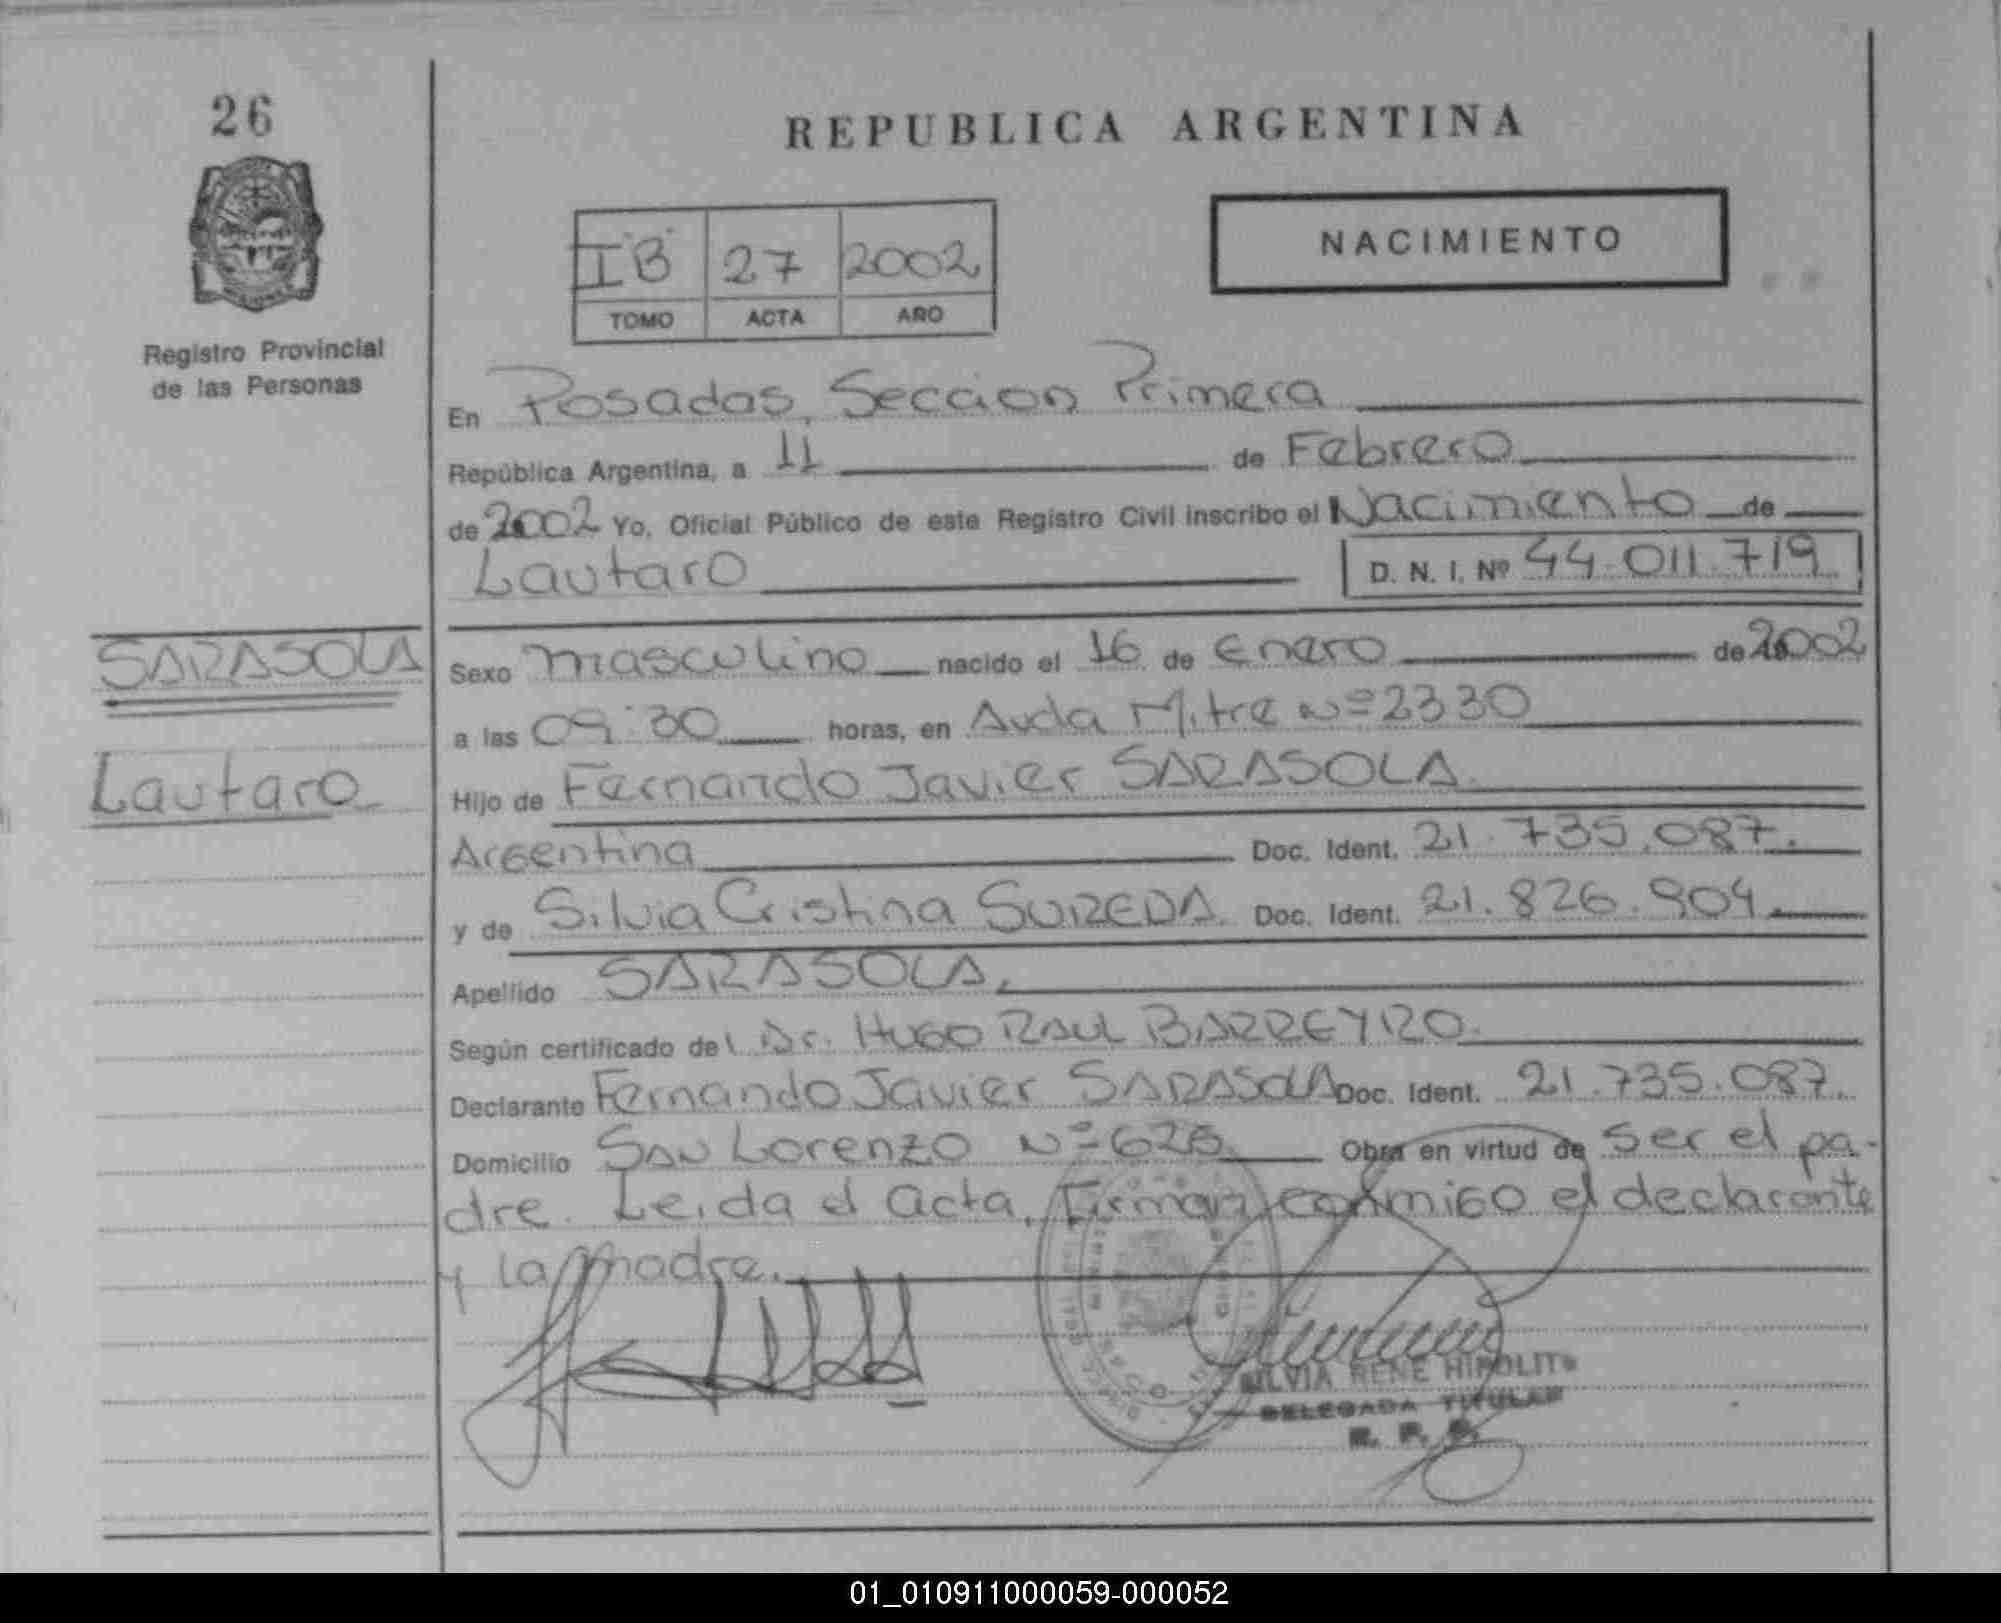 26
REPUBLICA ARGENTINA
I "B" 27 2002
TOMO ACTA AÑO
NACIMIENTO
Registro Provincial
de las Personas
En Posadas, Seccion Primera
República Argentina, a 11 de Febrero
de 2002 Yo, Oficial Público de este Registro Civil inscribo el Nacimiento de
Lautaro D. N. I. Nº 44.011.719
SARASOLA
Lautaro
Sexo masculino nacido el 16 de Enero de 2002
a las 09:30 horas, en Avda Mitre Nº 2330
Hijo de Fernando Javier SARASOLA.
Argentina Doc. Ident. 21.735.087.
y de Silvia Cristina Doc. Ident. 21.826.904.
Apellido SARASOLA.
Según certificado del Dr. HUGO RAUL BARREYRO.
Declarante Fernando Javier SARASOLA Doc. Ident. 21.735.087.
Domicilio SAN Lorenzo Nº Obra en virtud de ser el pa-
dre. Leida el acta, Firman conmigo el declarante
y la madre.
SILVIA RENE HIPOLITO
DELEGADA TITULAR
R. P. P.
01_010911000059-000052